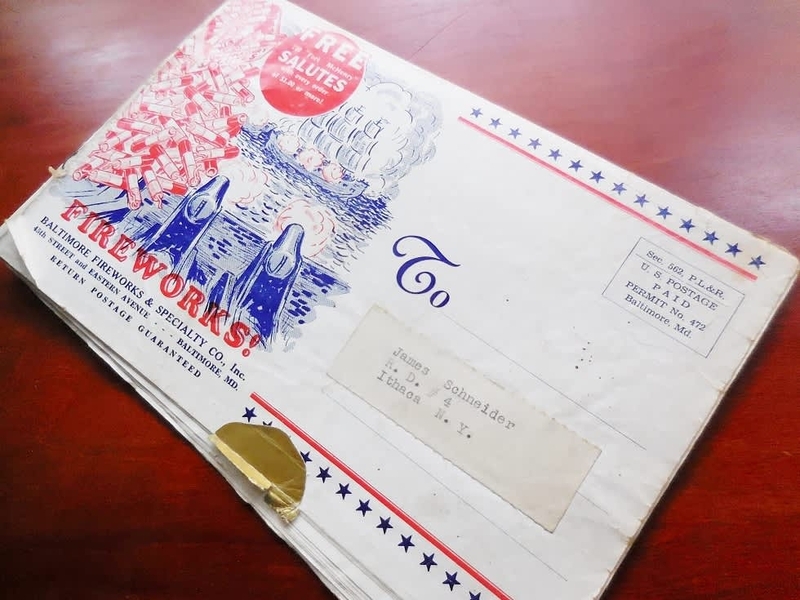 FREE
"Fort McHenry"
SALUTES
every order
of $1.00 or more!
FIREWORKS!
BALTIMORE FIREWORKS & SPECIALTY CO., Inc.
45th STREET and EASTERN AVENUE ... BALTIMORE, MD.
RETURN POSTAGE GUARANTEED
To
Sec. 562, P.L.&R.
U. S. POSTAGE
PAID
PERMIT No. 472
Baltimore, Md.
James Schneider
R. D. 4
Ithaca N. Y.